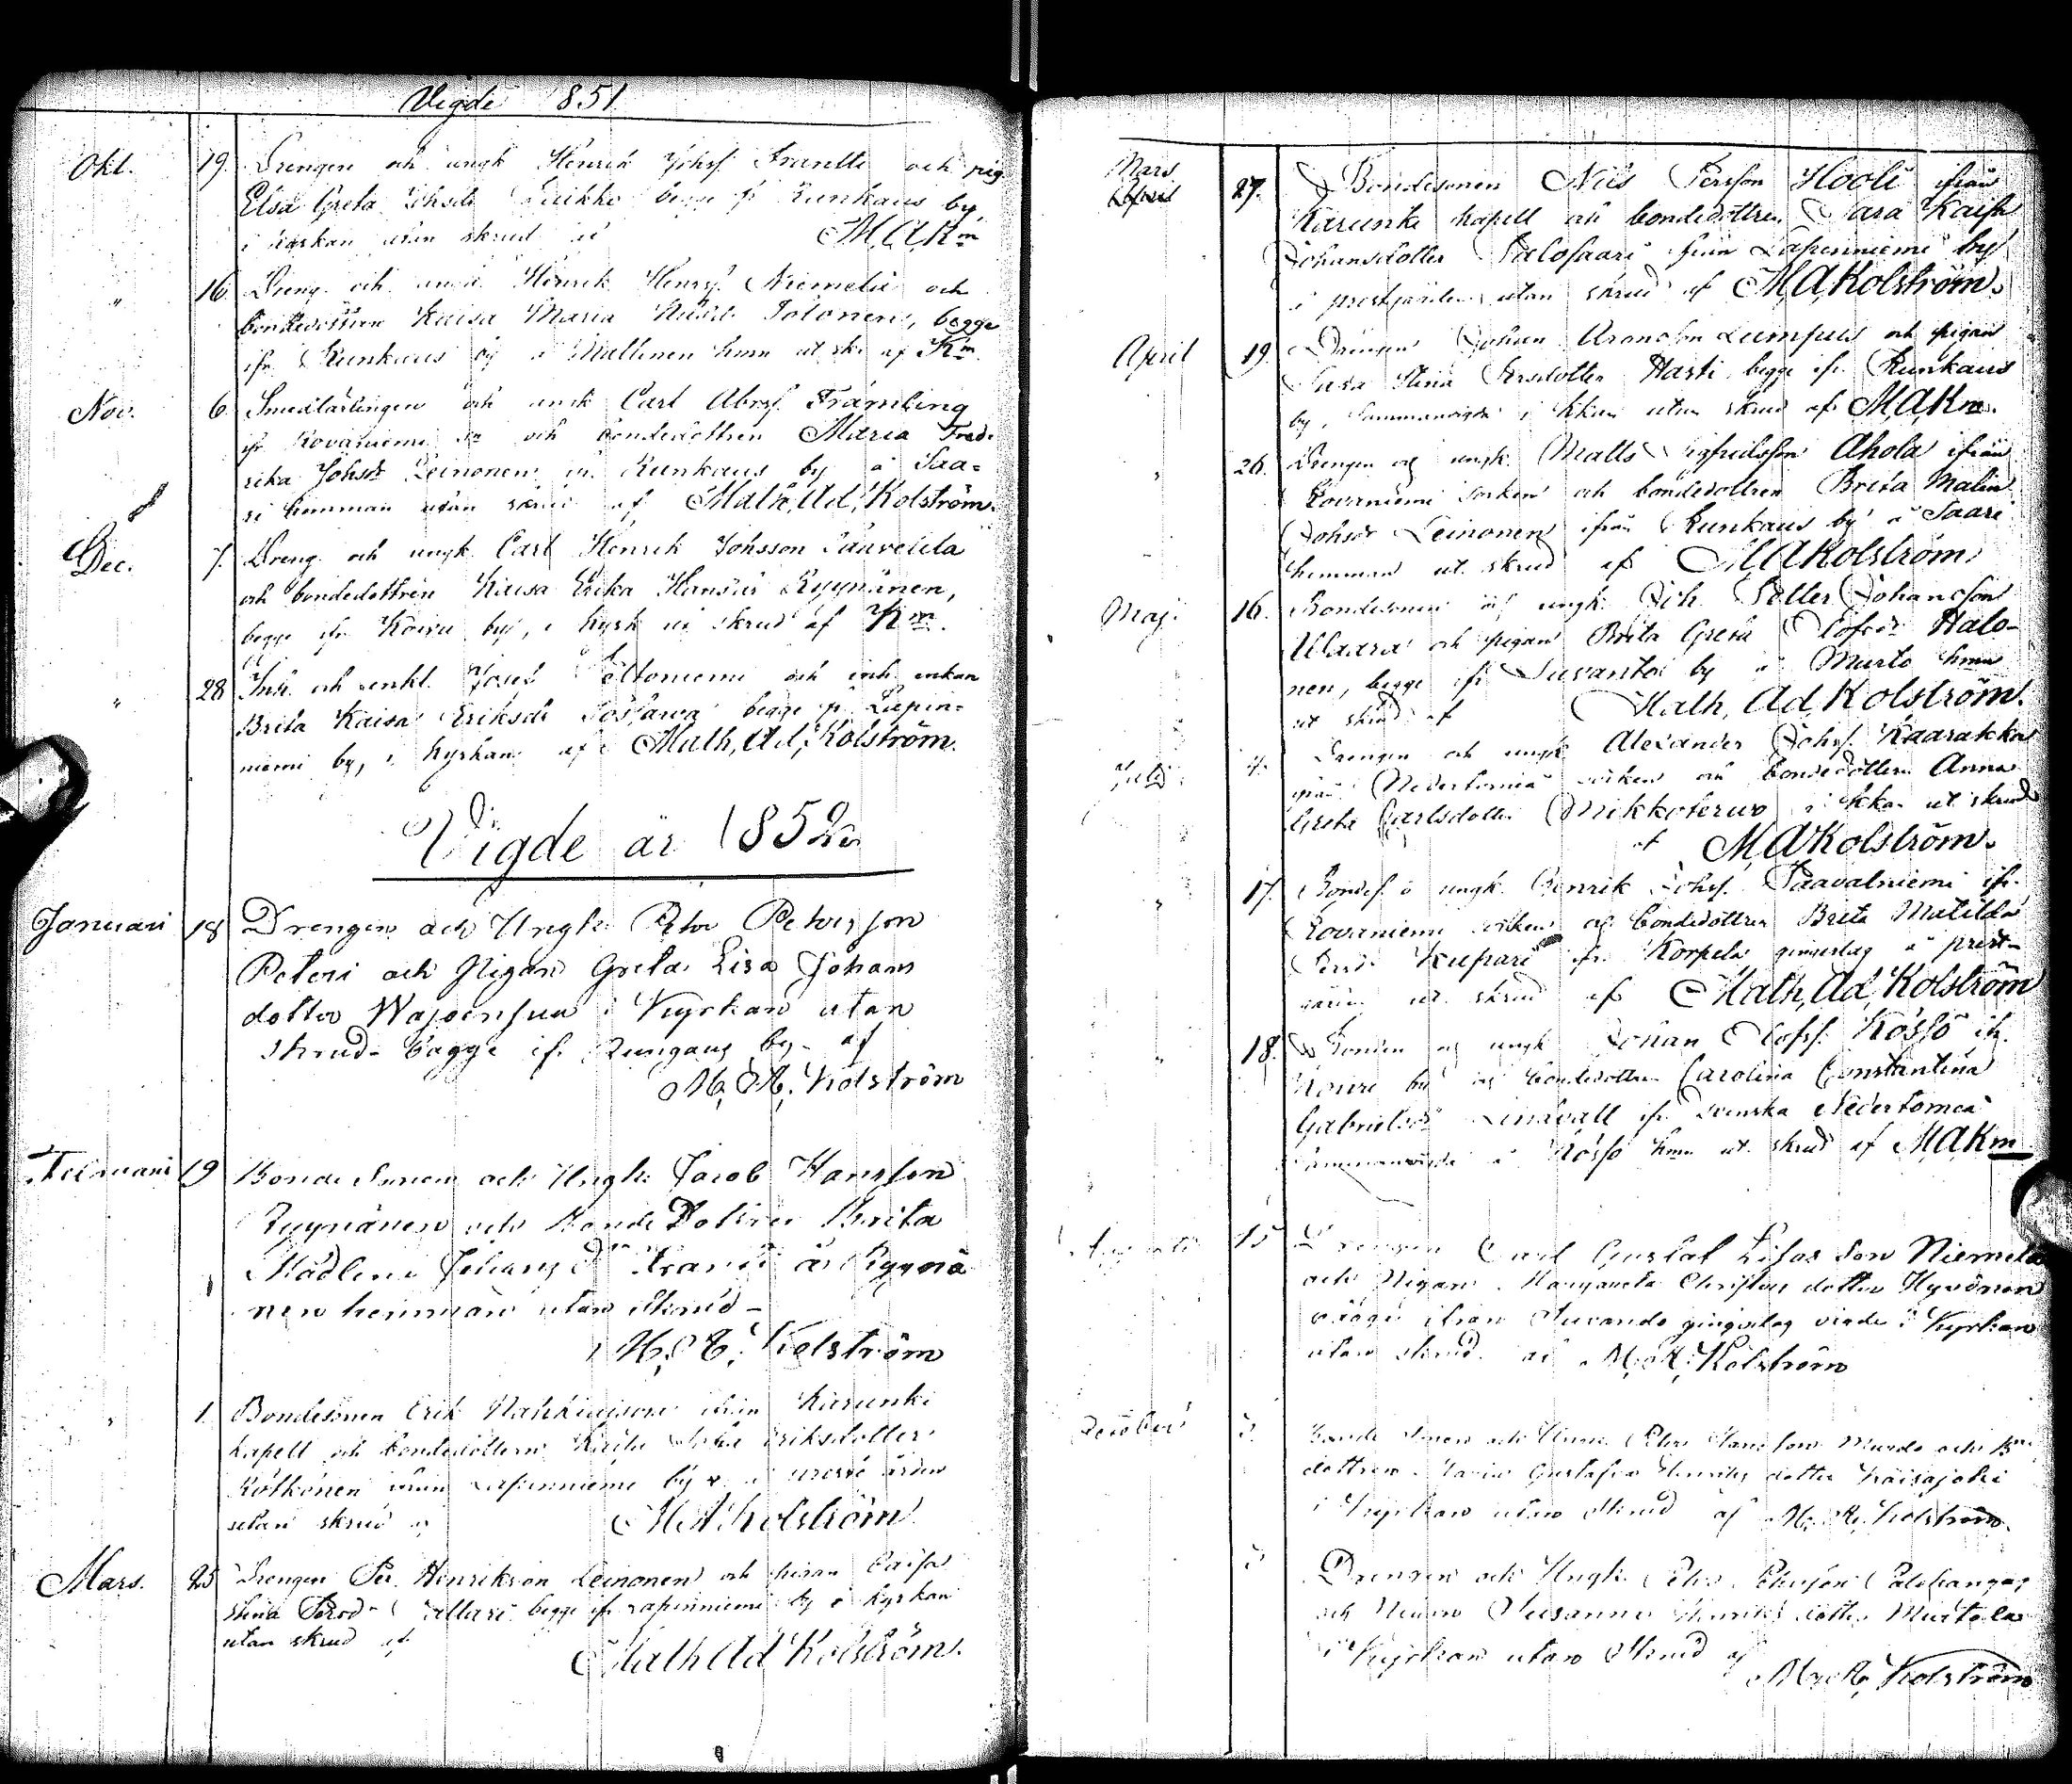 Vigde 1851.
Okt. 19. Drengen och ungk Henrik Johsf. Frantti och pig.
Elsa Greta Johsdr begge fr Runkaus by,
i kyrkan utan skrud af M.A.Km
" 16 Dreng. och Henrik Henrsf. Niemelä och
bondedottren Kaisa Maria Tolonen, begge
ifr. Runkaus by å Mattinen hmn ut. sk. af Km
Nov. 6. Smedlärlingen och ungk Carl Abrsf. Främling
ifr Rovaniemi sn och bondedottren Maria Fred-
rika Johsdr Leinonen ifr. Runkaus by å Saa-
ri hemman utan skrud af Math. Ad. Kolström.
Dec. 7. Dreng och ungk. Carl Henrik Johsson
och bondedottren Kaisa Erika Hansdr Ryynänen,
begge ifr Koivu by, i kyrk ut skrud af Km.
" 28 Inh. och enkl. Josef Peltoniemi och inh. enkan
Brita Kaisa Eriksdr begge fr. Lapin-
niemi by, i kyrkan af Math. Ad. Kolström.
Vigde år 1852
Januari 18 Drengen och Ungk: Petter Petersson
Peteri och Pigan Greta Lisa Johans
dotter i Kyrkan utan
skrud- bägge ifr. Rungaus by- af
M. A. Kolström
Februari 19 Bonde Sonen och Ungk: Jacob Hansson
Ryynänen och Bonde Dottren Brita
Madlena Johans Dr Frantti å Ryynä
nen hemman utan Skrud-
M. A. Kolström
" 1. Bondesonen Erik ifrån Karunki
kapell och bondedottren Brita Eriksdotter
Rötkönen ifrån Lapinniemi by
utan skrud af M A Kolström
Mars. 25 Drengen Per Henriksson Leinonen och pigan Caisa
Stina begge ifr Lapinniemi by i kyrkan
utan skrud af Math Ad Kolström.
Mars
April 27. Bondesonen Nils Persson Hooli ifrån
Karunki kapell och bondedottren Sara Kaisa
Johansdotter Palosaari från Lapinniemi by
i prestgården utan skrud af M A Kolström.
April 19. Drengen Johan Aronsson Lumpus och pigan
Stina Persdotter Harti begge ifr. Runkaus
by, Sammanvigde i kkan utan skrud af M A Km.
" 26. Drengen og ungk. Matts Sigfridsson Ahola ifrån
Rovaniemi socken och bondedottren Brita Malin
Johsdr Leinonen ifrån Runkaus by å Saari
hemman ut. skrud af M A Kolström
Maj. 16. Bondesonen och ungk. Joh. Petter Johansson
Waara och pigan Brita Greta Olofsdr Halo-
nen, begge ifr Suvanto by å Murto hmn
ut skrud af Math. Ad Kolström.
Julij. 4. Drengen och ungk Alexander Johsf. Kaarakka
ifrån Nedertorneå socken och bondedottren Anna
Greta Carlsdotter Mikkotervo i kkan ut skrud
af M A Kolström.
" 17. Bondes. o ungk. Henrik Johsf. Paavalniemi ifr.
Rovaniemi socken och bondedottren Brita Matilda
Persdr Kupari ifr. Korpela gingerlag å prest-
gården ut skrud af Math. Ad. Kolström
" 18. Bonden og ungk Johan Olofsf. Kössö ifr.
by og bondedottren Carolina Constantina
Gabrielsdr Lindvall ifr. Svenska Nedertorneå
Sammanvigde å Kössö hmn ut. skrud af M A Km
15 Drengen Carl Gustaf Niemelä
och Pigan Margareta Christers dotter Hyvönen
bägge ifrån Suvando gingerlag vigde i Kyrkan
utan skrud. af M. A. Kolström
October 3. Bonde Sonen och Petter Hansson Murdo och Bde
dottren Maria Gustafva Henriks dotter
i Kyrkan utan Skrud af M. A. Kolström.
3 Drengen och Ungk: Petter Petersson
och Pigan Susanna Henriks dotter Murtola
i Kyrkan utan Skrud af
M. A. Kolström